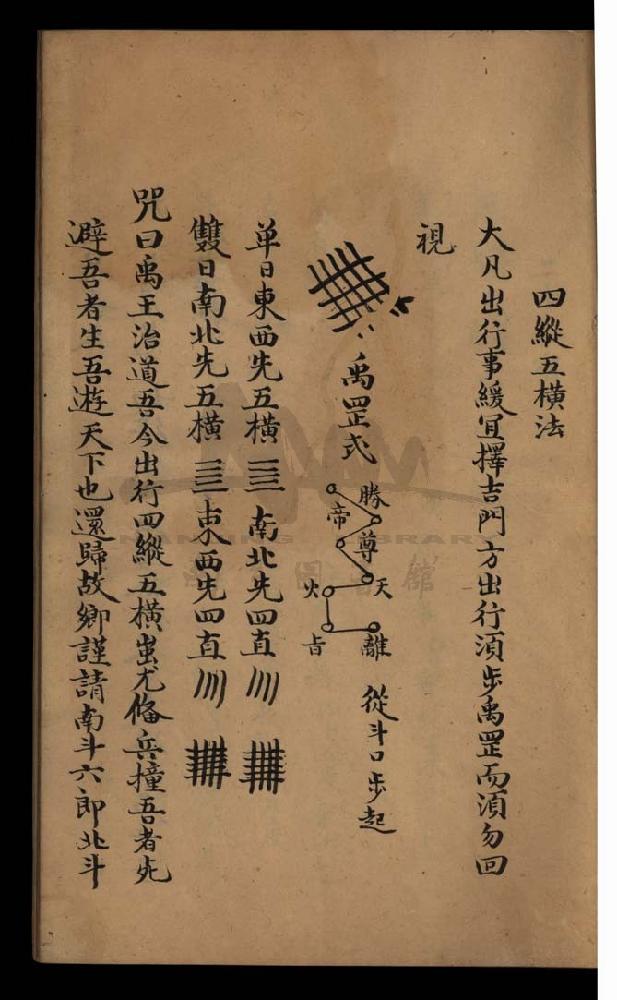 四縱五橫法
大凡出行事緩宜擇吉門方出行須步禹罡而須勿回
視
禹罡式
勝
帝
尊
天
火
旨
離
從斗口步起
单日東西先五橫 南北先四直
雙日南北先五橫 東西先四直
咒曰禹王治道吾今出行四縱五橫蚩尤俻兵撞吾者死
避吾者生吾遊天下也還歸故鄉謹請南斗六郎北斗